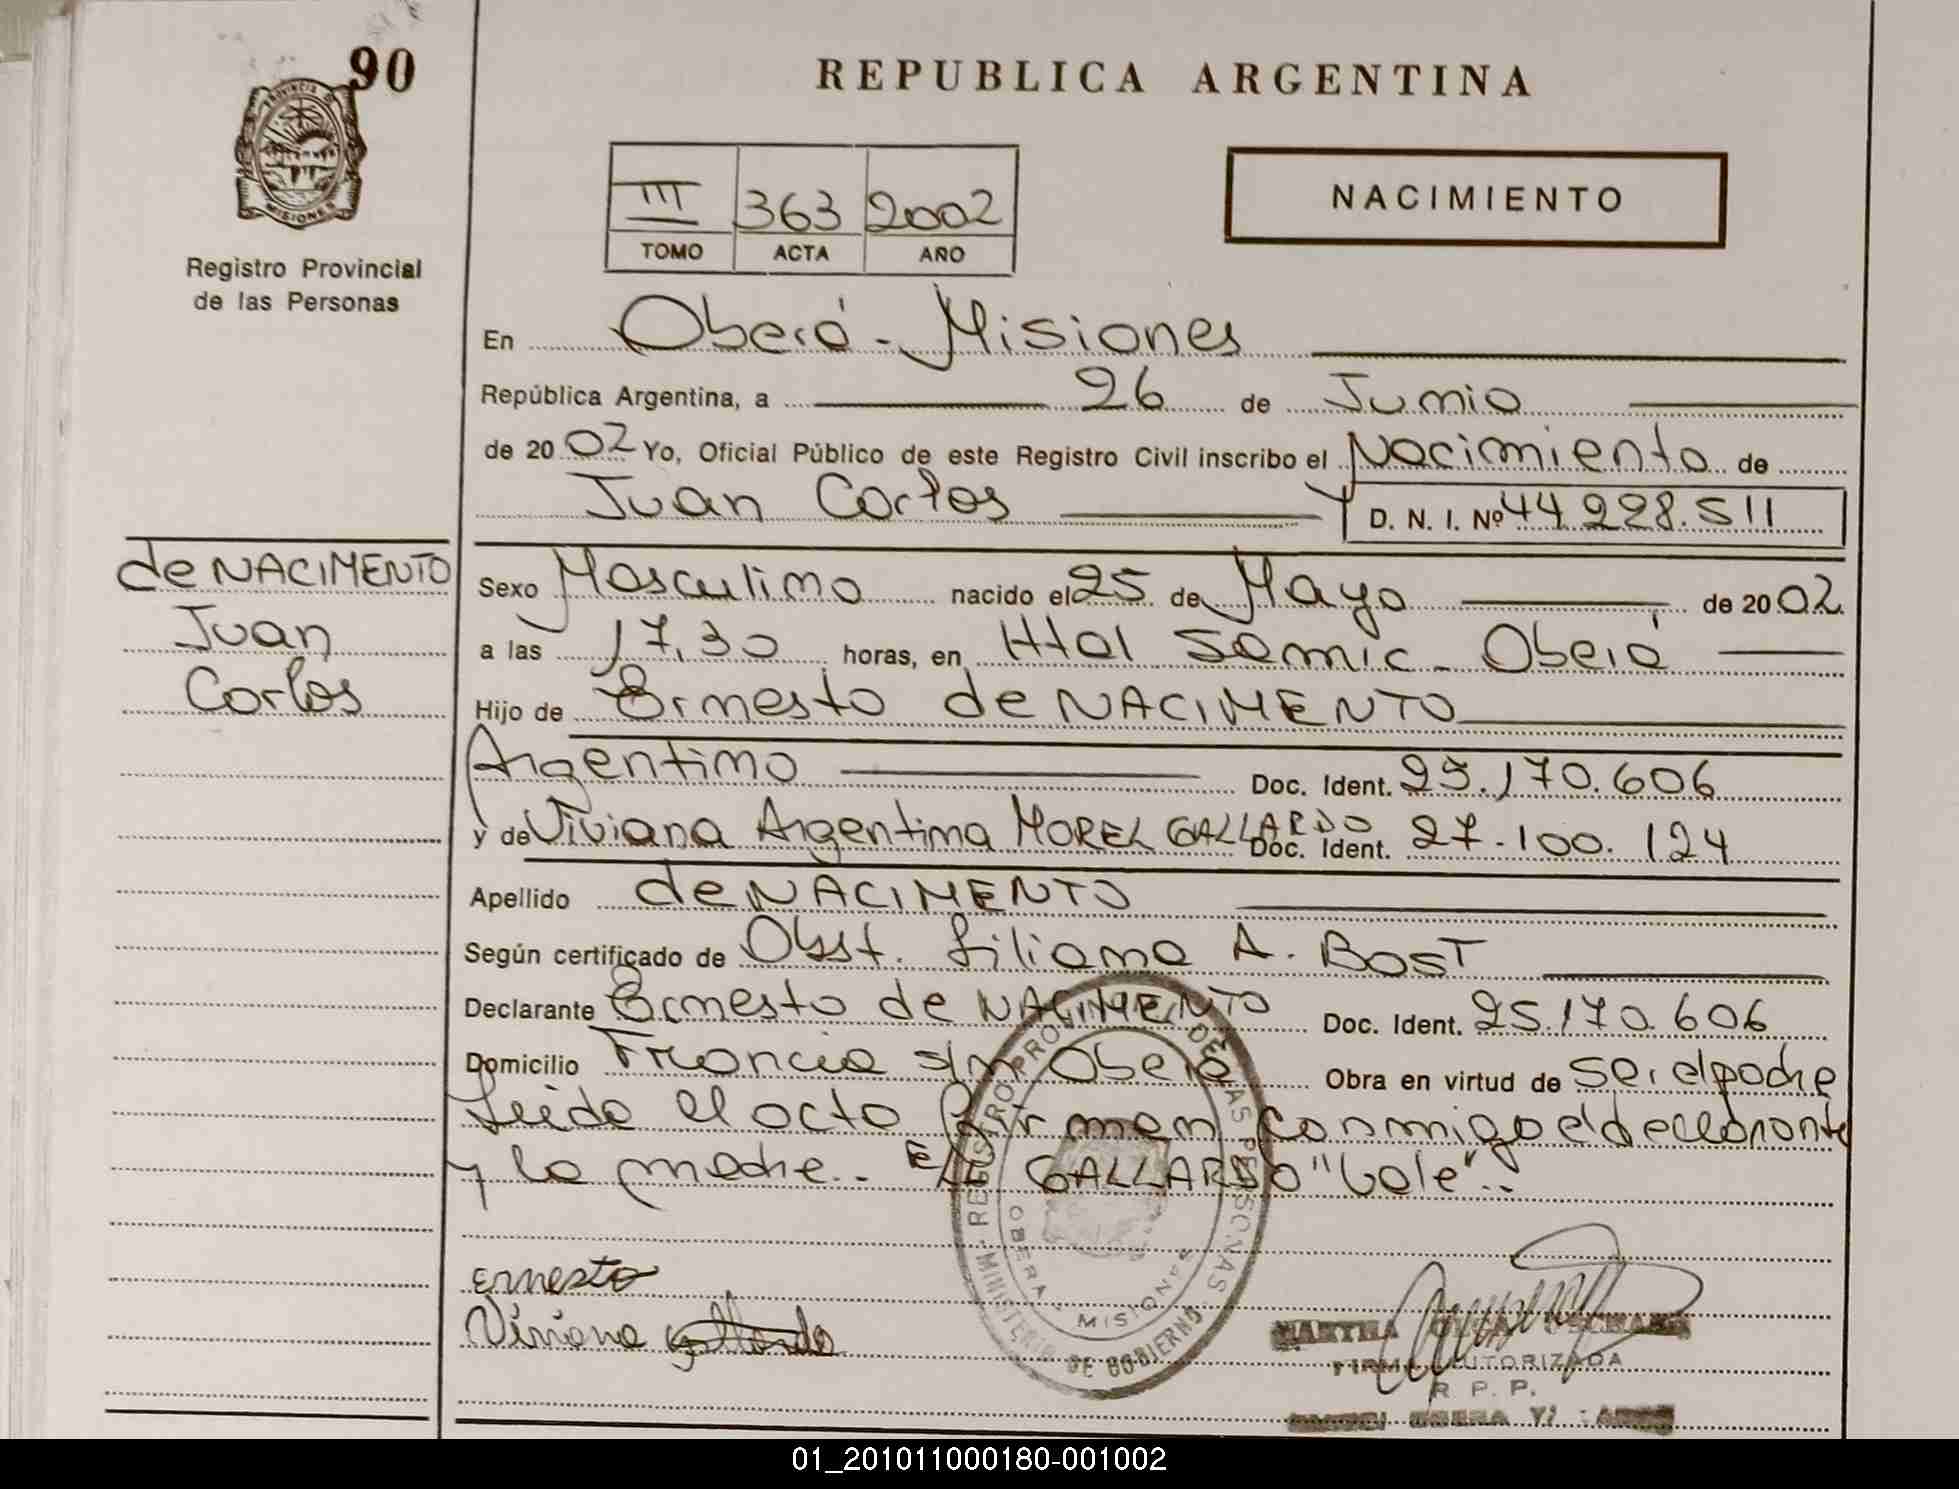 90
REPUBLICA ARGENTINA
PROVINCIA DE MISIONES
Registro Provincial
de las Personas
III 363 2002
TOMO ACTA AÑO
NACIMIENTO
En Oberá - Misiones
República Argentina, a 26 de Junio
de 2002 Yo, Oficial Público de este Registro Civil inscribo el Nacimiento de
Juan Carlos D. N. I. Nº 44.228.511
de NACIMENTO
Juan
Carlos
Sexo Masculino nacido el 25 de Mayo de 2002.
a las 17,30 horas, en Htal Samic - Oberá
Hijo de Ernesto de NACIMENTO
Argentino Doc. Ident. 25.170.606
y de Viviana Argentina MOREL GALLARDO Doc. Ident. 27.100.124
Apellido de NACIMENTO
Según certificado de Obst. Liliana A. BOST
Declarante Ernesto de NACIMENTO Doc. Ident. 25.170.606
Domicilio Francia s/nº Oberá Obra en virtud de ser el padre
Leida el acta firman conmigo el declarante
y la madre.. E/L GALLARDO "Vale"..
REGISTRO PROVINCIAL DE LAS PERSONAS
MINISTERIO DE GOBIERNO
OBERA - MISIONES
Ernesto
Viviana gallardo
MARTHA
FIRMA AUTORIZADA
R. P. P.
OBERA
01_201011000180-001002